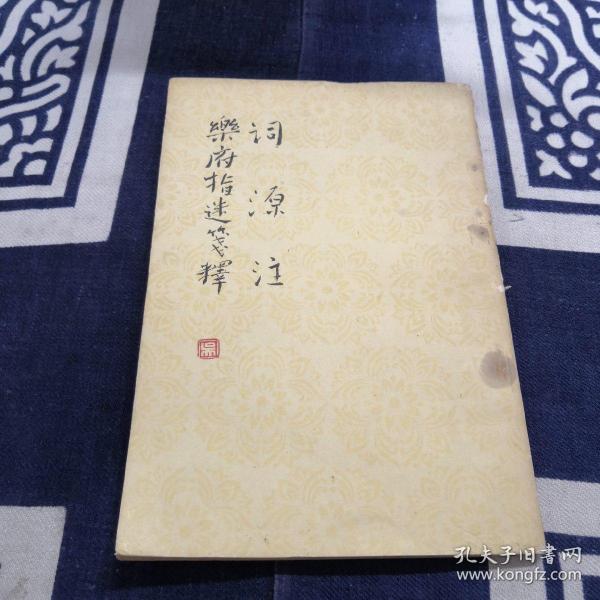 词源注
樂府指迷箋釋
孔夫子旧書网
www.kongfz.com